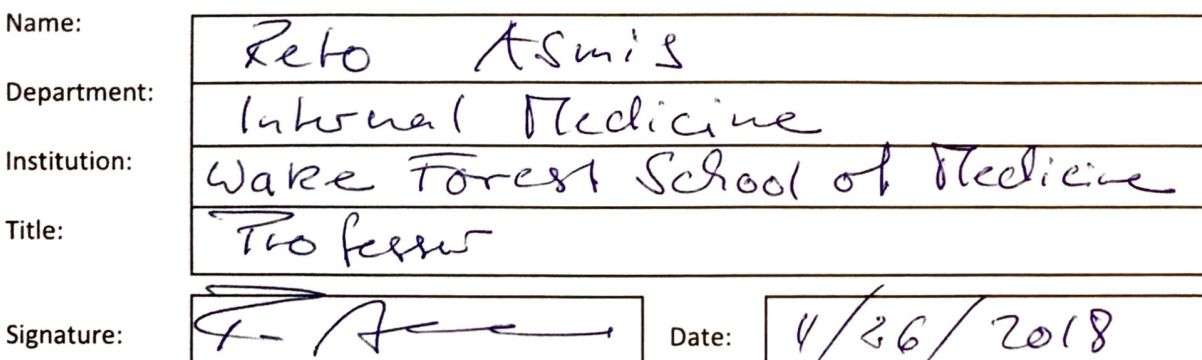 Name: Reto Asmis
Department: Internal Medicine
Institution: Wake Forest School of Medicine
Title: Professor
Signature: Date: 4/26/2018